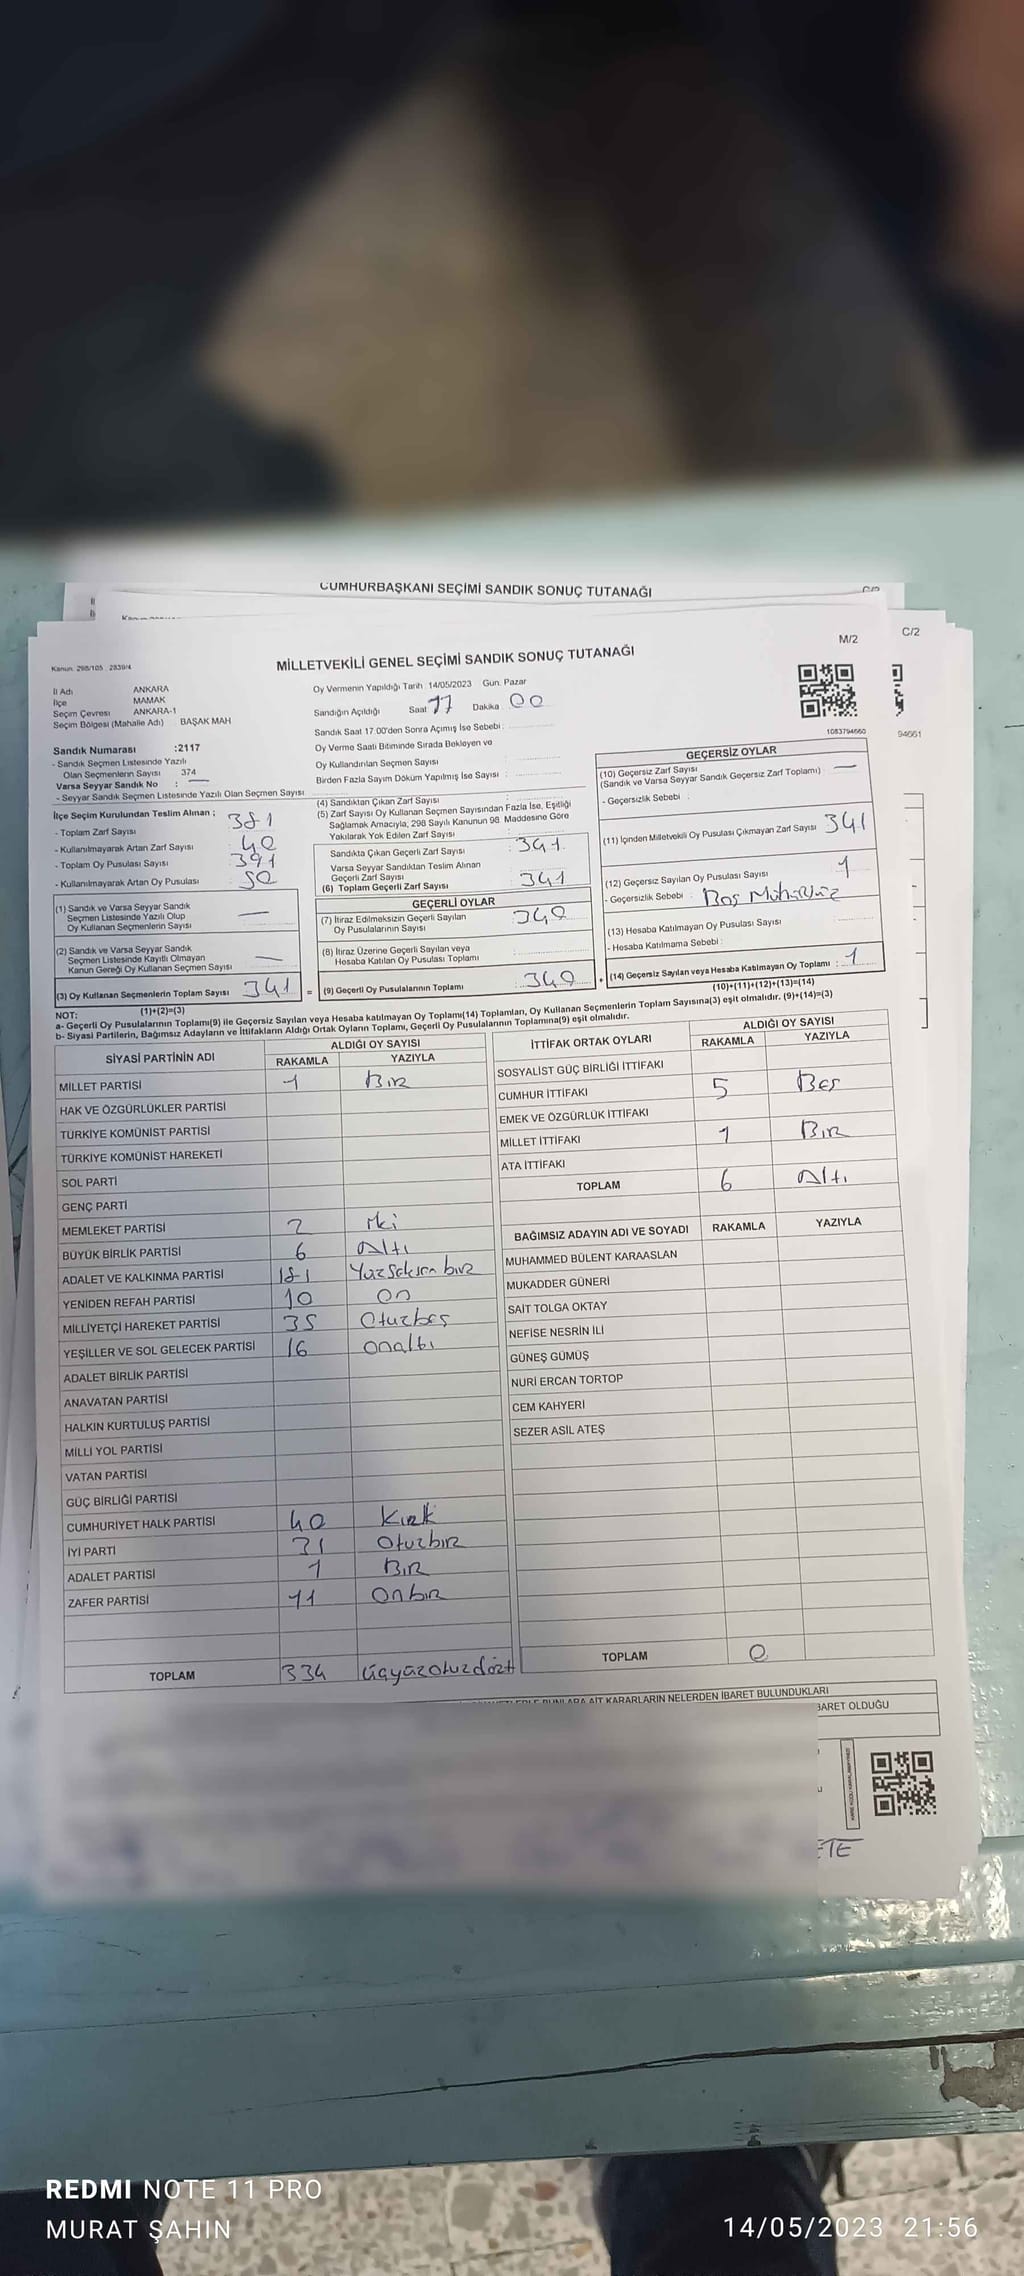 CUMHURBAŞKANI SEÇİMİ SANDIK SONUÇ TUTANAĞI
C/2
M/2
C/2
Kanun: 298/105 2839/4
MİLLETVEKİLİ GENEL SEÇİMİ SANDIK SONUÇ TUTANAĞI
İl Adı ANKARA
İlçe MAMAK
Seçim Çevresi ANKARA-1
Seçim Bölgesi (Mahalle Adı) BAŞAK MAH
Oy Vermenin Yapıldığı Tarih :14/05/2023 Gün: Pazar
Sandığın Açıldığı Saat 17 Dakika 00
Sandık Saat 17.00'den Sonra Açımış İse Sebebi :
Oy Verme Saati Bitiminde Sırada Bekleyen ve
Oy Kullandırılan Seçmen Sayısı
Birden Fazla Sayım Döküm Yapılmış İse Sayısı :
1083794660
94661
Sandık Numarası :2117
- Sandık Seçmen Listesinde Yazılı
Olan Seçmenlerin Sayısı 374
Varsa Seyyar Sandık No : —
- Seyyar Sandık Seçmen Listesinde Yazılı Olan Seçmen Sayısı
İlçe Seçim Kurulundan Teslim Alınan ;
- Toplam Zarf Sayısı 381
- Kullanılmayarak Artan Zarf Sayısı 40
- Toplam Oy Pusulası Sayısı 391
- Kullanılmayarak Artan Oy Pusulası 50
(1) Sandık ve Varsa Seyyar Sandık
Seçmen Listesinde Yazılı Olup
Oy Kullanan Seçmenlerin Sayısı —
(2) Sandık ve Varsa Seyyar Sandık
Seçmen Listesinde Kayıtlı Olmayan
Kanun Gereği Oy Kullanan Seçmen Sayısı —
(3) Oy Kullanan Seçmenlerin Toplam Sayısı 341
(1)+(2)=(3)
(4) Sandıktan Çıkan Zarf Sayısı
(5) Zarf Sayısı Oy Kullanan Seçmen Sayısından Fazla İse, Eşitliği
Sağlamak Amacıyla, 298 Sayılı Kanunun 98. Maddesine Göre
Yakılarak Yok Edilen Zarf Sayısı
Sandıkta Çıkan Geçerli Zarf Sayısı : 341
Varsa Seyyar Sandıktan Teslim Alınan
Geçerli Zarf Sayısı
(6) Toplam Geçerli Zarf Sayısı : 341
GEÇERLİ OYLAR
(7) İtiraz Edilmeksizin Geçerli Sayılan
Oy Pusulalarının Sayısı : 340
(8) İtiraz Üzerine Geçerli Sayılan veya
Hesaba Katılan Oy Pusulası Toplamı
= (9) Geçerli Oy Pusulalarının Toplamı : 340 +
GEÇERSİZ OYLAR
(10) Geçersiz Zarf Sayısı
(Sandık ve Varsa Seyyar Sandık Geçersiz Zarf Toplamı) —
- Geçersizlik Sebebi :
(11) İçinden Milletvekili Oy Pusulası Çıkmayan Zarf Sayısı 341
(12) Geçersiz Sayılan Oy Pusulası Sayısı 1
- Geçersizlik Sebebi : Boş Mühürsüz
(13) Hesaba Katılmayan Oy Pusulası Sayısı
- Hesaba Katılmama Sebebi :
(14) Geçersiz Sayılan veya Hesaba Katılmayan Oy Toplamı : 1
(10)+(11)+(12)+(13)=(14)
NOT:
a- Geçerli Oy Pusulalarının Toplamı(9) ile Geçersiz Sayılan veya Hesaba katılmayan Oy Toplamı(14) Toplamları, Oy Kullanan Seçmenlerin Toplam Sayısına(3) eşit olmalıdır. (9)+(14)=(3)
b- Siyasi Partilerin, Bağımsız Adayların ve İttifakların Aldığı Ortak Oyların Toplamı, Geçerli Oy Pusulalarının Toplamına(9) eşit olmalıdır.
SİYASİ PARTİNİN ADI ALDIĞI OY SAYISI
RAKAMLA YAZIYLA
MİLLET PARTİSİ 1 Bir
HAK VE ÖZGÜRLÜKLER PARTİSİ
TÜRKİYE KOMÜNİST PARTİSİ
TÜRKİYE KOMÜNİST HAREKETİ
SOL PARTİ
GENÇ PARTİ
MEMLEKET PARTİSİ 2 iki
BÜYÜK BİRLİK PARTİSİ 6 Altı
ADALET VE KALKINMA PARTİSİ 181 Yüzseksen bir
YENİDEN REFAH PARTİSİ 10 On
MİLLİYETÇİ HAREKET PARTİSİ 35 Otuzbeş
YEŞİLLER VE SOL GELECEK PARTİSİ 16 Onaltı
ADALET BİRLİK PARTİSİ
ANAVATAN PARTİSİ
HALKIN KURTULUŞ PARTİSİ
MİLLİ YOL PARTİSİ
VATAN PARTİSİ
GÜÇ BİRLİĞİ PARTİSİ
CUMHURİYET HALK PARTİSİ 40 Kırk
İYİ PARTİ 31 Otuzbir
ADALET PARTİSİ 1 Bir
ZAFER PARTİSİ 11 Onbir
TOPLAM 334 Üçyüzotuzdört
İTTİFAK ORTAK OYLARI ALDIĞI OY SAYISI
RAKAMLA YAZIYLA
SOSYALİST GÜÇ BİRLİĞİ İTTİFAKI
CUMHUR İTTİFAKI 5 Beş
EMEK VE ÖZGÜRLÜK İTTİFAKI
MİLLET İTTİFAKI 1 Bir
ATA İTTİFAKI
TOPLAM 6 Altı
BAĞIMSIZ ADAYIN ADI VE SOYADI RAKAMLA YAZIYLA
MUHAMMED BÜLENT KARAASLAN
MUKADDER GÜNERİ
SAİT TOLGA OKTAY
NEFİSE NESRİN İLİ
GÜNEŞ GÜMÜŞ
NURİ ERCAN TORTOP
CEM KAHYERİ
SEZER ASİL ATEŞ
TOPLAM 0
BUNLARA AİT KARARLARIN NELERDEN İBARET BULUNDUKLARI
BARET OLDUĞU
ETE
REDMI NOTE 11 PRO
MURAT ŞAHIN
14/05/2023 21:56